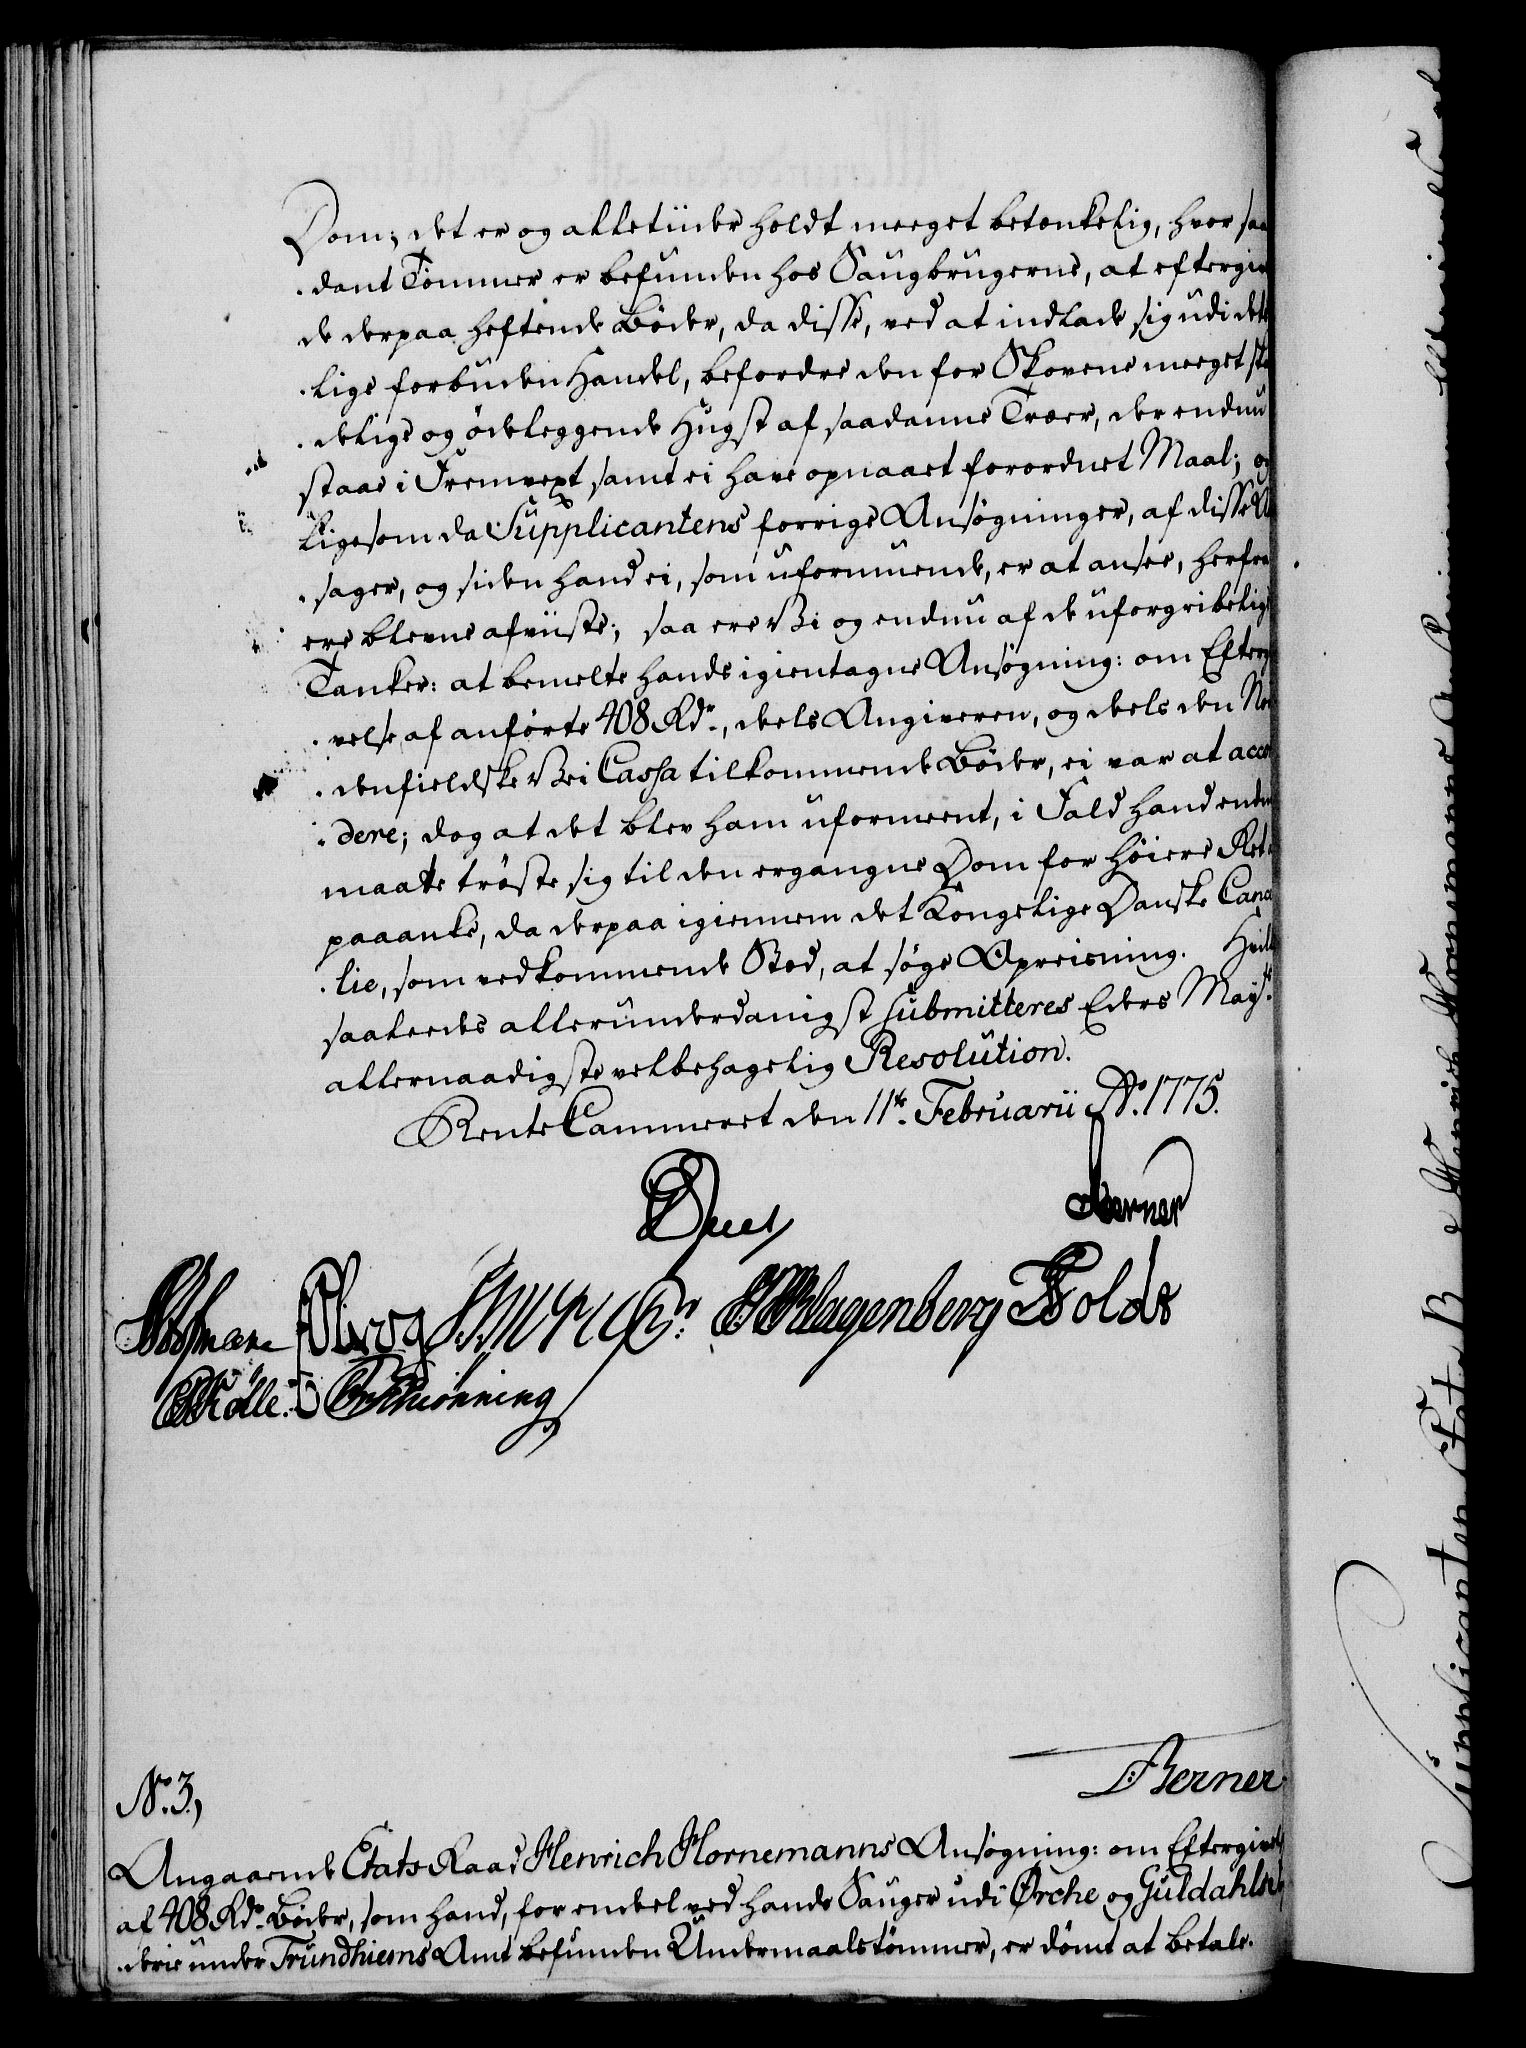 Dom; det er og alletiider holdt meeget betænkelig, hvor saa
dant Tömmer er befunden hos Saugbrugerne, at eftergiv
de derpaa heftende Böder, da disse, ved at indlade sig udi det
lige forbuden Handel, befordre den for Skovene meeget ska
delige og ödeleggende Hugst af saadanne Træer, der endnu
staae i Fremvext samt ei have opnaaet forordnet Maal; og
ligesom da Supplicantens forrige Ansøgninger, af disse A
sager, og siden hand ei, som uformuende, er at ansee, herfor
ere blevne afviiste; saa ere Vi og endnu af de uforgribelige
Tanker: at bemelte hands igientagne Ansøgning: om Efter
velse af anførte 408 Rdr., deels Angiveren, og deels den Nor
denfieldske Vei Cassa tilkommende Böder, ei var at acco
dere; dog at det blev ham uformeent, i Fald hand endn
maatte trøste sig til den ergangne Dom for høiere Ret
paaanke, da derpaa igiennem det Kongelige Danske Canc
lie, som vedkommende Sted, at søge Opreisning. Hvil
saaledes allerunderdanigst submitteres Eders Mayts.
allernaadigste velbehagelig Resolution.
RenteCammeret den 11te. Februarii Ao. 1775.
Berner
Klagenberg Holdt
Schiønning
Berner
No. 3,
Angaaende Etats Raad Henrich Hornemanns Ansøgning: om Eftergivels
af 408 Rdr. Böder, som hand, for endeel ved hands Sauger udi Ørche og Guldahls
derie under Trundhiems Amt befunden Undermaalstömmer, er dömt at betale.